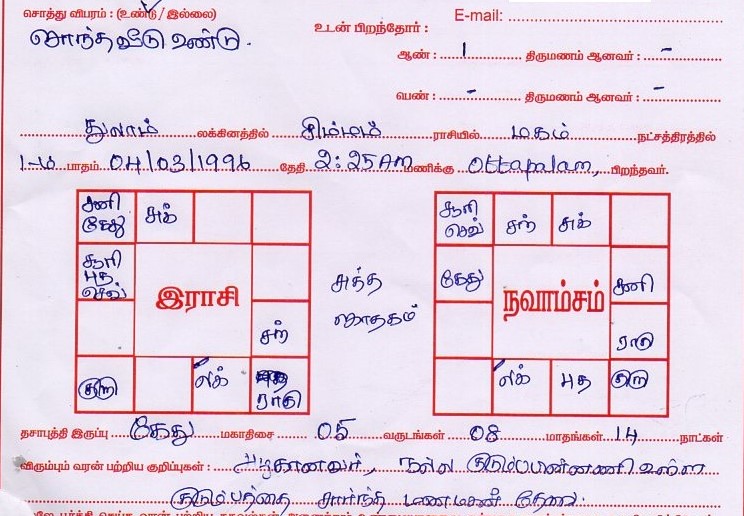 சொத்து விபரம் : (உண்டு / இல்லை) E-mail:
சொந்தவீடு உண்டு.
உடன் பிறந்தோர் :
ஆண் : 1 திருமணம் ஆனவர் : -
பெண் : - திருமணம் ஆனவர் : -
துலாம் லக்கினத்தில் சிம்மம் ராசியில் மகம் நட்சத்திரத்தில்
1-ம் பாதம் 04/03/1996 தேதி 2:25AM மணிக்கு Ottapalam, பிறந்தவர்.
சனி கேது சுக்
சூரி புத செவ்
இராசி
சந்
குரு லக் ராகு
சுத்த ஜாதகம்
சூரி செவ் சந் சுக்
கேது சனி
நவாம்சம்
ராகு
லக் புத குரு
தசாபுத்தி இருப்பு கேது மகாதிசை 05 வருடங்கள் 08 மாதங்கள் 14 நாட்கள்
விரும்பும் வரன் பற்றிய குறிப்புகள் : அழகானவர், நல்ல குடும்பபின்னணி உள்ள
குடும்பத்தை சார்ந்த மணமகன் தேவை.